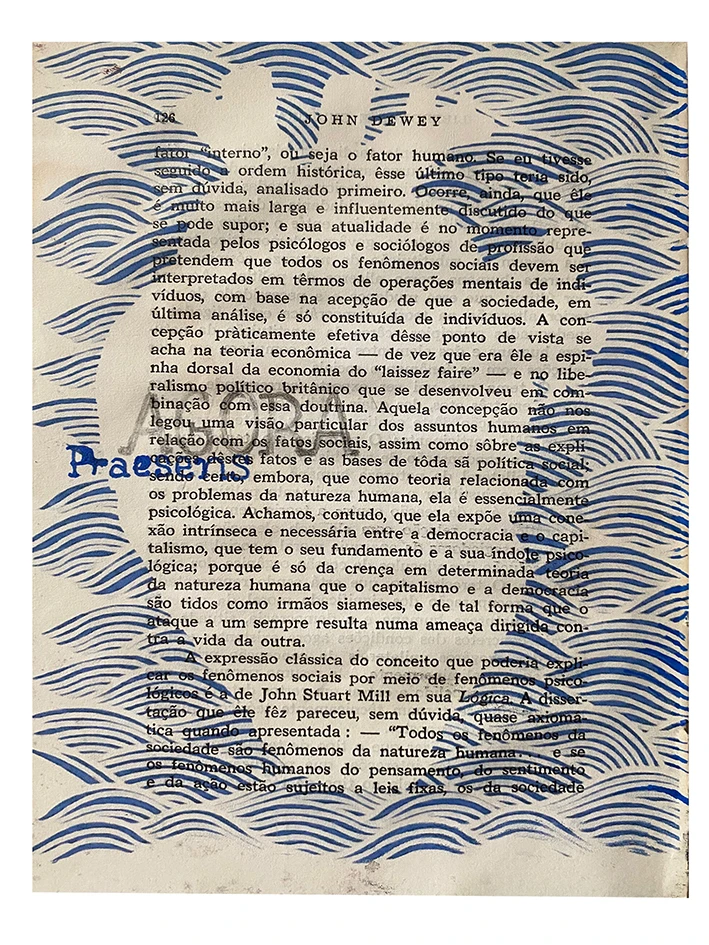 126
JOHN DEWEY
fator "interno", ou seja o fator humano. Se eu tivesse
seguido a ordem histórica, êsse último tipo teria sido,
sem dúvida, analisado primeiro. Ocorre, ainda, que êle
é muito mais larga e influentemente discutido do que
se pode supor; e sua atualidade é no momento repre-
sentada pelos psicólogos e sociólogos de profissão que
pretendem que todos os fenômenos sociais devem ser
interpretados em têrmos de operações mentais de indi-
víduos, com base na acepção de que a sociedade, em
última análise, é só constituída de indivíduos. A con-
cepção pràticamente efetiva dêsse ponto de vista se
acha na teoria econômica — de vez que era êle a espi-
nha dorsal da economia do "laissez faire" — e no libe-
ralismo político britânico que se desenvolveu em com-
binação com essa doutrina. Aquela concepção não nos
legou uma visão particular dos assuntos humanos em
AGORA
relação com os fatos sociais, assim como sôbre as expli-
Praesens
cações dêstes fatos e as bases de tôda sã política social;
sendo certo, embora, que como teoria relacionada com
os problemas da natureza humana, ela é essencialmente
psicológica. Achamos, contudo, que ela expõe uma cone-
xão intrínseca e necessária entre a democracia e o capi-
talismo, que tem o seu fundamento e a sua índole psico-
lógica; porque é só da crença em determinada teoria
da natureza humana que o capitalismo e a democracia
são tidos como irmãos siameses, e de tal forma que o
ataque a um sempre resulta numa ameaça dirigida con-
tra a vida da outra.
A expressão clássica do conceito que poderia expli-
car os fenômenos sociais por meio de fenômenos psico-
lógicos é a de John Stuart Mill em sua Lógica. A disser-
tação que êle fêz pareceu, sem dúvida, quase axiomá-
tica quando apresentada: — "Todos os fenômenos da
sociedade são fenômenos da natureza humana... e se
os fenômenos humanos do pensamento, do sentimento
e da ação estão sujeitos a leis fixas, os da sociedade